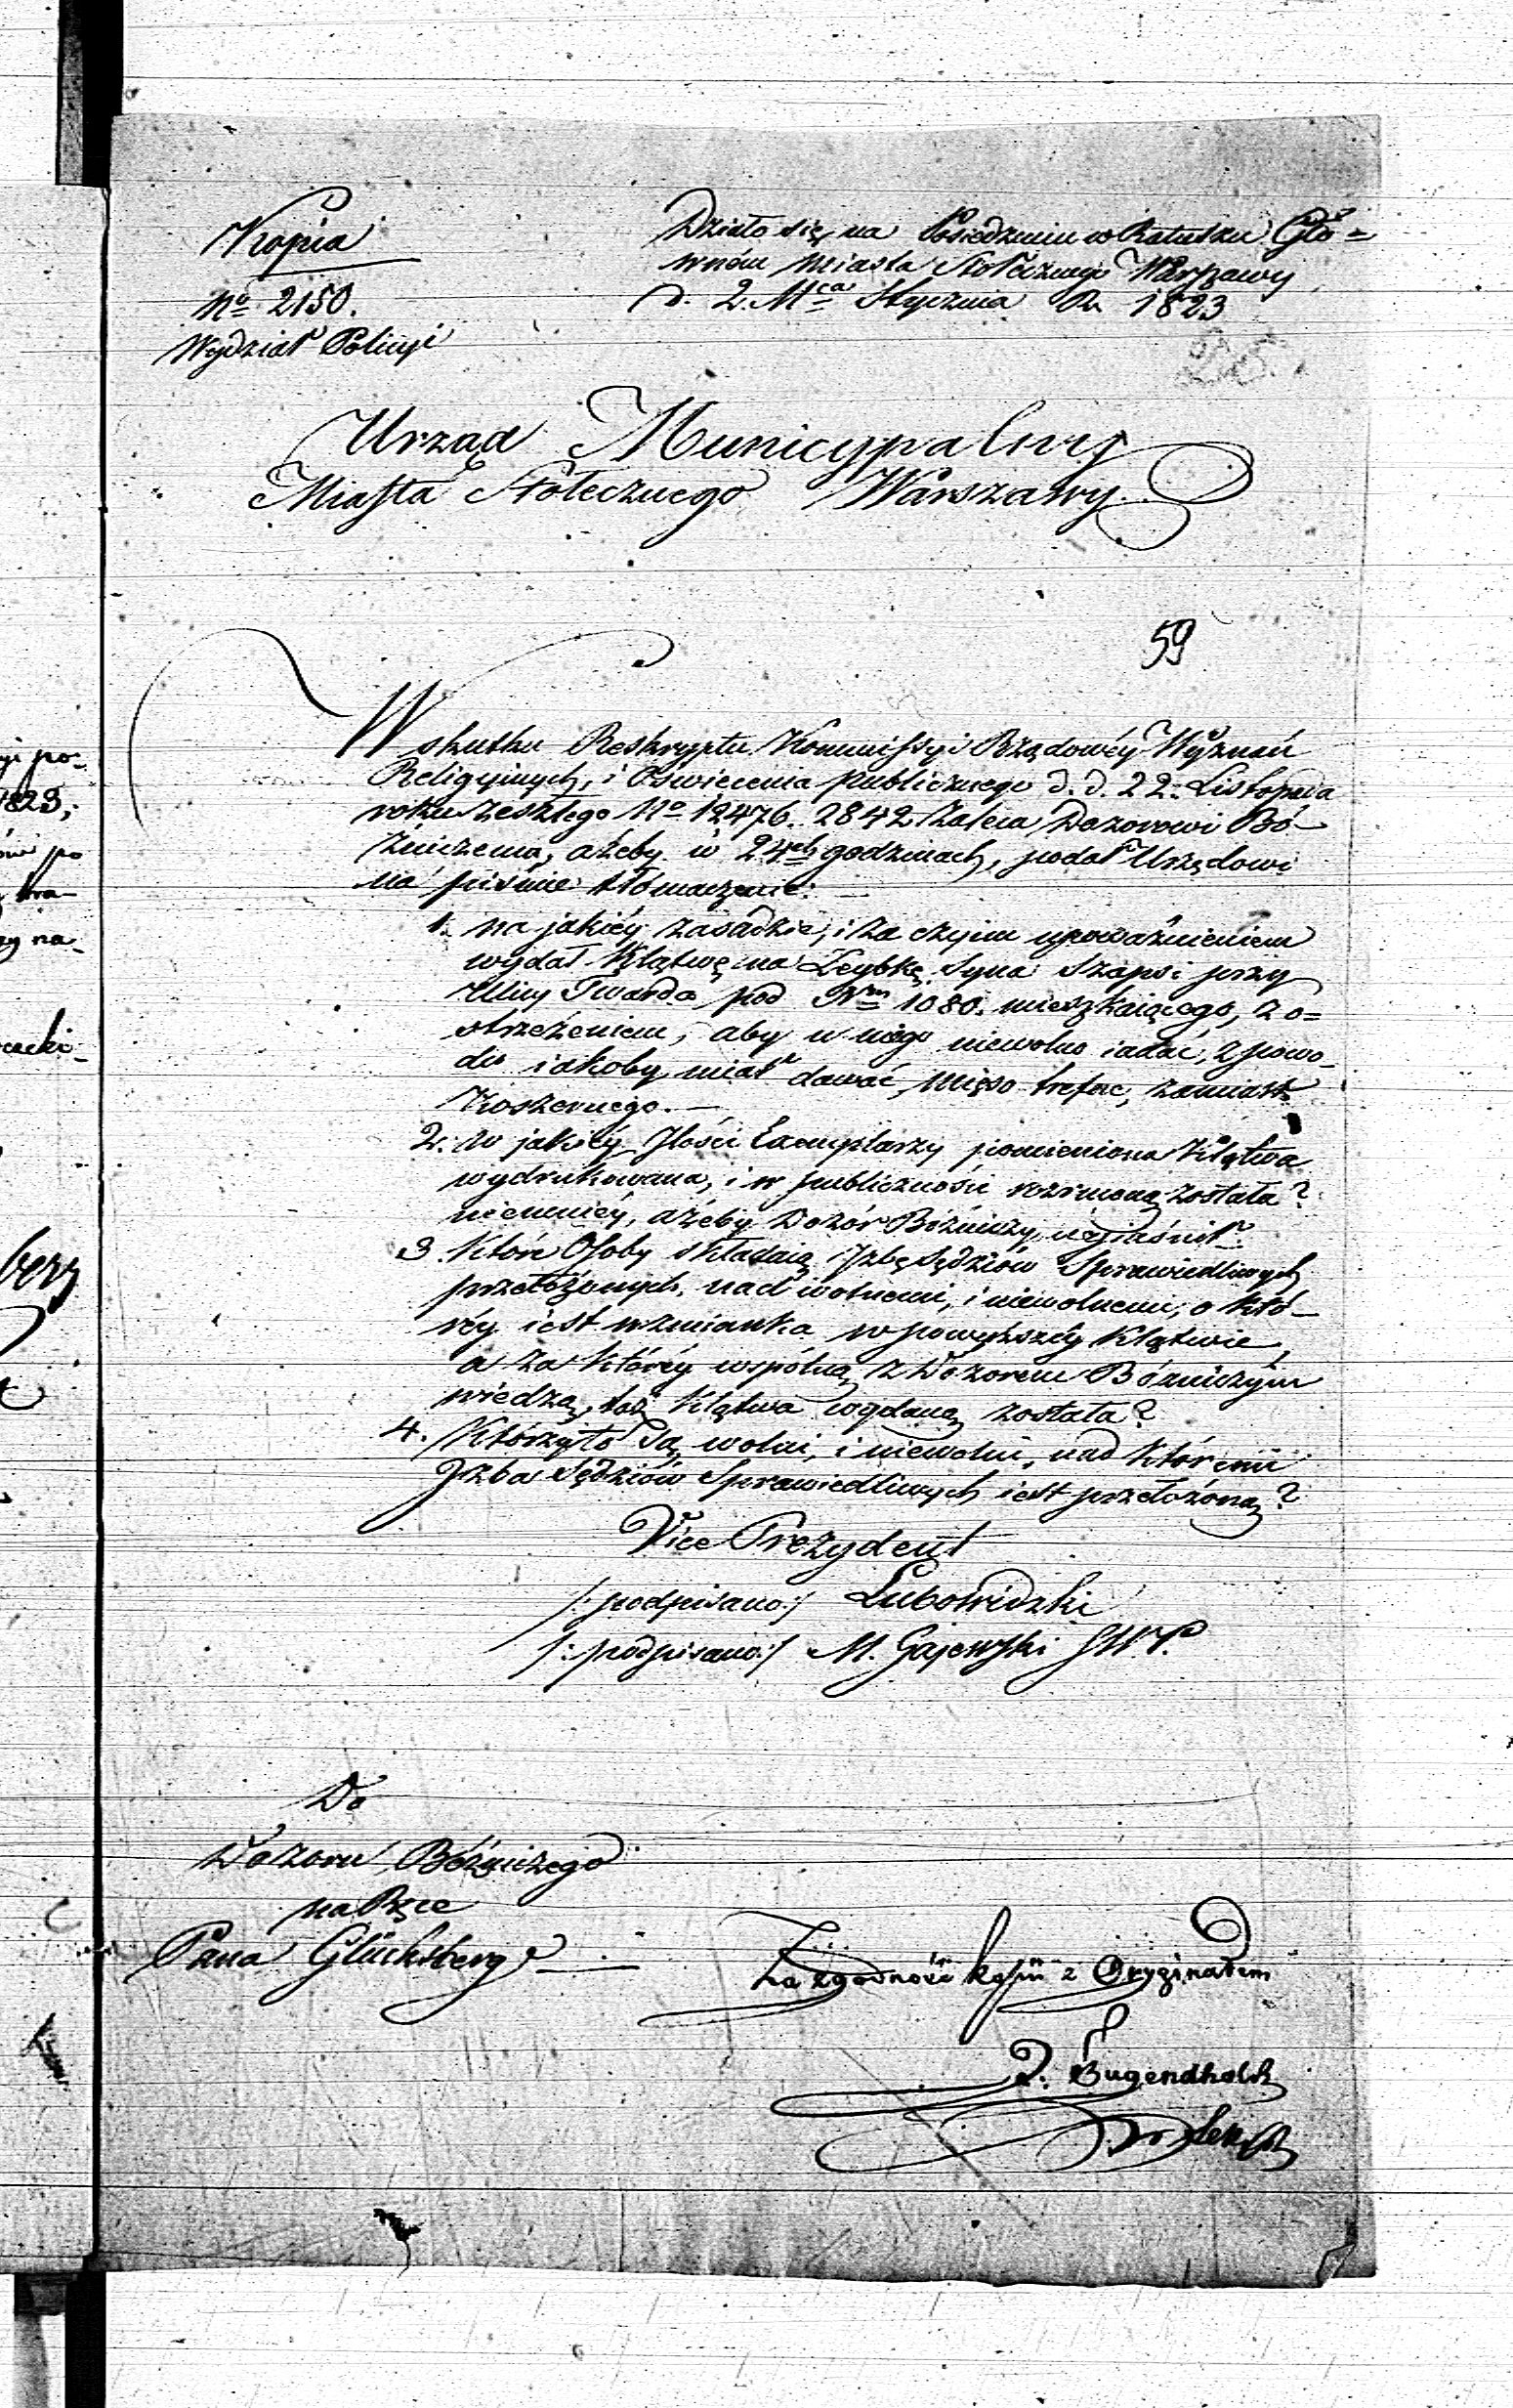 Kopia
No 2150.
Wydział Policyi
Działo się na Posiedzeniu w Ratuszu Głó=
wném Miasta Stołecznego Warszawy
d. 2. Mca Stycznia R. 1823
Urząd Municypalny
Miasta Stołecznego Warszawy.
59
W skutku Reskryptu Kommissyi Rządowéy Wyznań
Religiynych, i Oświecenia publicznego d. d. 22. Listopada
roku zeszłego No 12476. 2842 zaleca Dozorowi Bó-
źniczemu, ażeby w 24ch godzinach, podał Urzędowi
na piśmie tłómaczenie:
1. na jakiéy zasadzie, i za czyim upoważnieniem
wydał Klątwę na Leybkę Syna Szapsi przy
Ulicy Twarda pod Nrm 1080. mieszkaiącego, z o=
strzeżeniem, aby u niego niewolno iadać, z powo-
du iakoby miał dawać mięso trefne, zamiast
Koszernego. —
2. w jakiéy Ilości Exemplarzy pomieniona Klątwa
wydrukowana, i w publiczności rozrzucona została?
niemniéy, ażeby Dozór Bóźniczy wyjaśnił.
3. Które Osoby składaią Izbę Sędziów Sprawiedliwych
przełożonych, nad wolnemi, i niewolnemi, o któ-
réy iest wzmianka w powyższéy Klątwie,
a za któréy wspólną z Dozorem Bóźniczym
wiedzą, taż Klątwa wydaną została?
4. Którzy to są wolni, i niewolni, nad któremi
Izba Sędziów Sprawiedliwych iest przełożoną?
Vice Prezydent
/: podpisano :/ Lubowidzki
/: podpisano :/ M. Gajewski
Do
Dozoru Bóźniczego
na Ręce
Pana Glücksberg
Za zgodność kopii z Oryginałem
J. Tugendhold